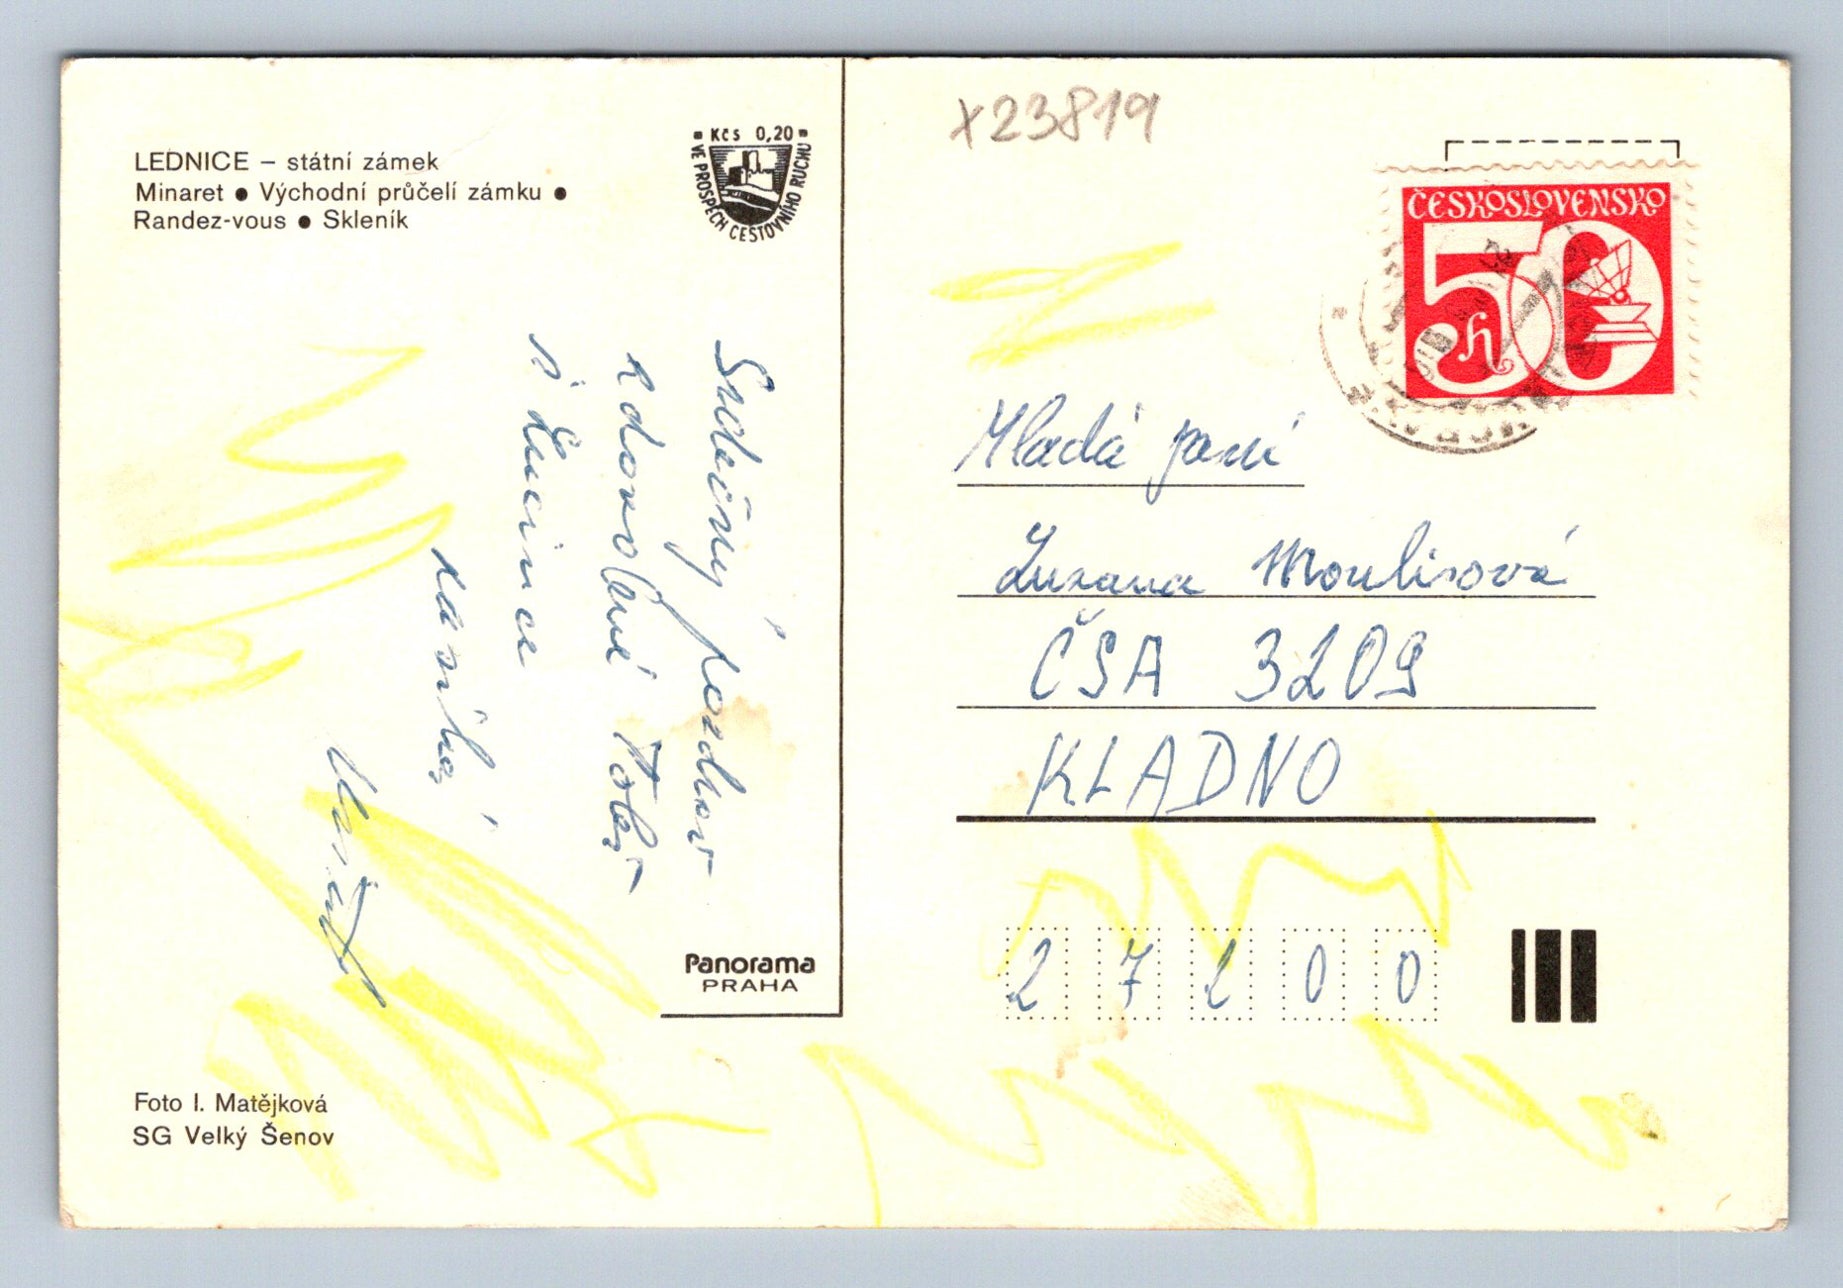 x23819
LEDNICE – státní zámek
Minaret ● Východní průčelí zámku ●
Randez-vous ● Skleník
Kčs 0,20
VE PROSPĚCH CESTOVNÍHO RUCHU
ČESKOSLOVENSKO
50 h
Srdečný pozdrav
z dovolené Tobě
i Lucince
zasílá
Mladá paní
Zuzana Moulisová
ČSA 3209
KLADNO
27200
Panorama
PRAHA
Foto I. Matějková
SG Velký Šenov